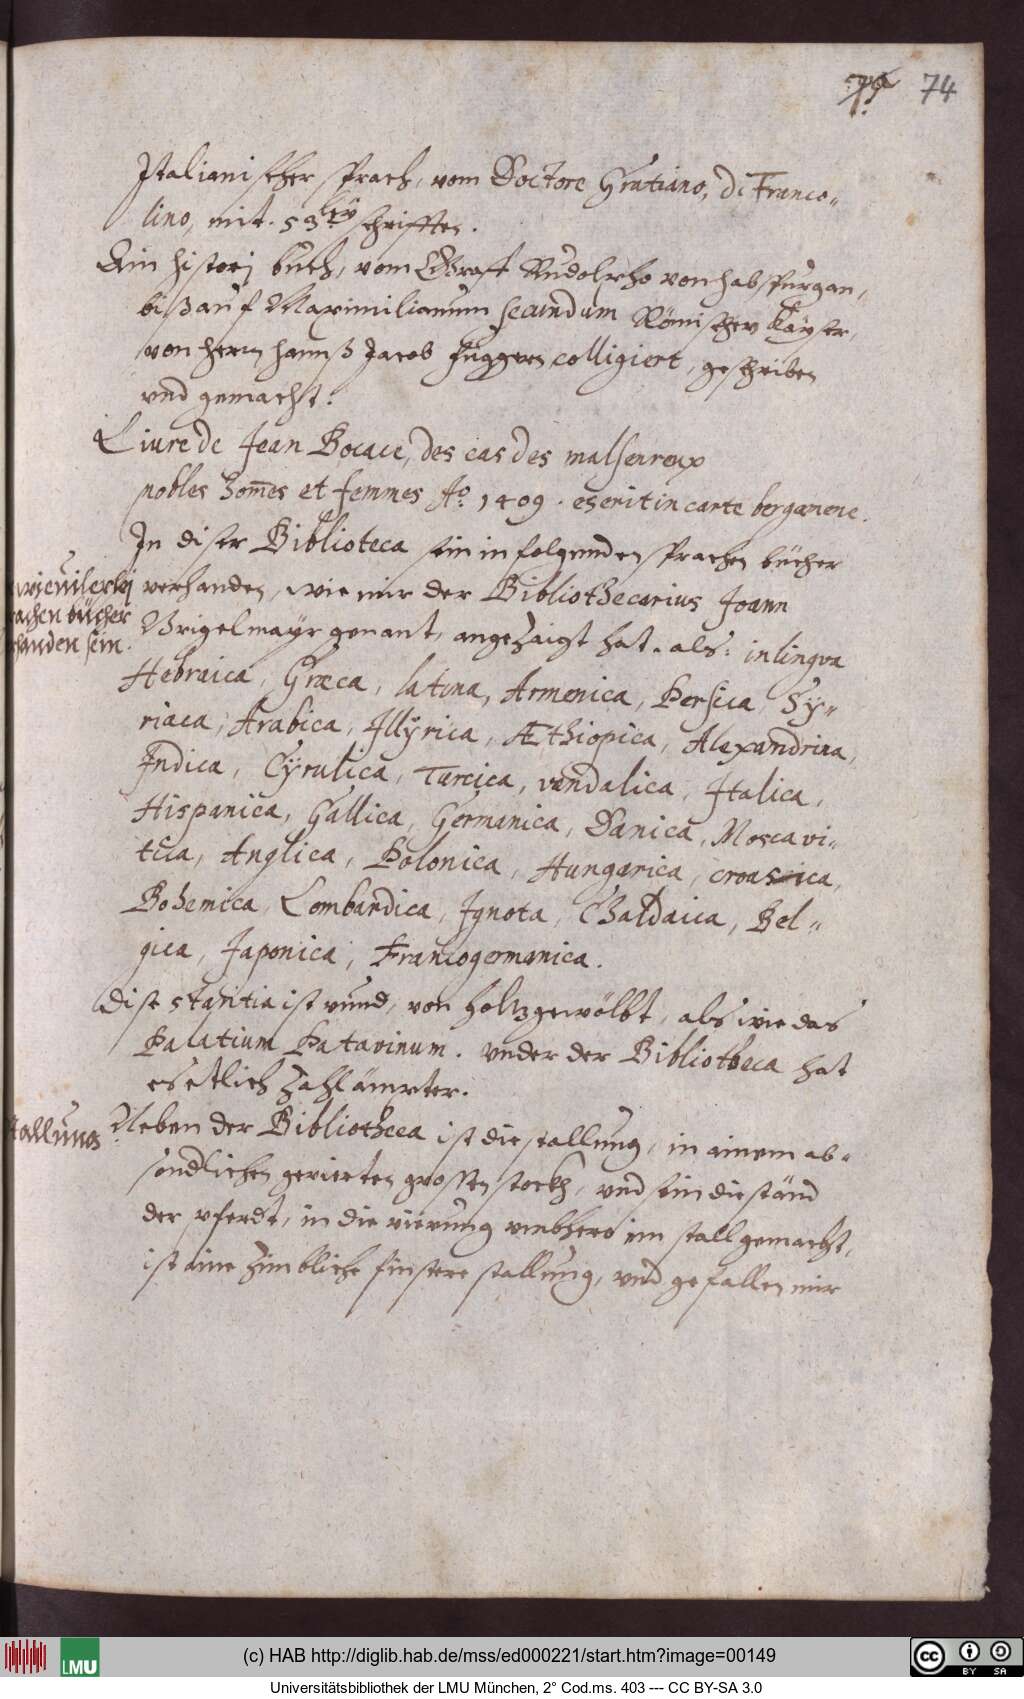 74
Italianischer sprach, vom Doctore Gratiano, di Franco-
lino, mit 53 schrifften.
Ein historj buch, vom Graff Rudolpho von habspurg an,
biß auf Maximilianum secundum Römischen Kayser,
von herrn hannß Jacob Fuggern colligiert, geschriben
vnd gemacht.
Liure de Jean Bocace, des cas des malheureux
nobles hom̃es et femmes Ao. 1409. escrit in carte bergamene.
In diser Biblioteca sein in folgenden sprachen bücher
wieuilerlej
achen bücher
handen sein.
verhanden, wie mir der Bibliothecarius Joann
Brigelmayr genant, angezaigt hat. als: in lingua
Hebraica, Græca, latina, Armenica, Persica, Sy-
riaca, Arabica, Illÿrica, Æthiopica, Alexandrina,
Indica, Cyrulica, Turcica, vandalica, Italica,
Hispanica, Gallica, Germanica, Danica, Moscavi-
tica, Anglica, Polonica, Hungarica, croasica,
Bohemica, Lombardica, Ignota, Chaldaica, Bel-
gica, Japonica, Francogermanica.
Dise stantia ist rund, von holtz gewölbt, als wie das
Palatium Patavinum. vnder der Bibliotheca hat
es etlich Zahlämpter.
tallung
Neben der Bibliotheca ist die stallung, in ainem ab-
söndlichen gevierten grossen stockh, vnd sein die ständ
der pferdt, in die vierung vmbhero im stall gemacht,
ist aine zimbliche finstere stallung, vnd gefallen mir
(c) HAB http://diglib.hab.de/mss/ed000221/start.htm?image=00149
LMU
CC BY SA
Universitätsbibliothek der LMU München, 2° Cod.ms. 403 --- CC BY-SA 3.0